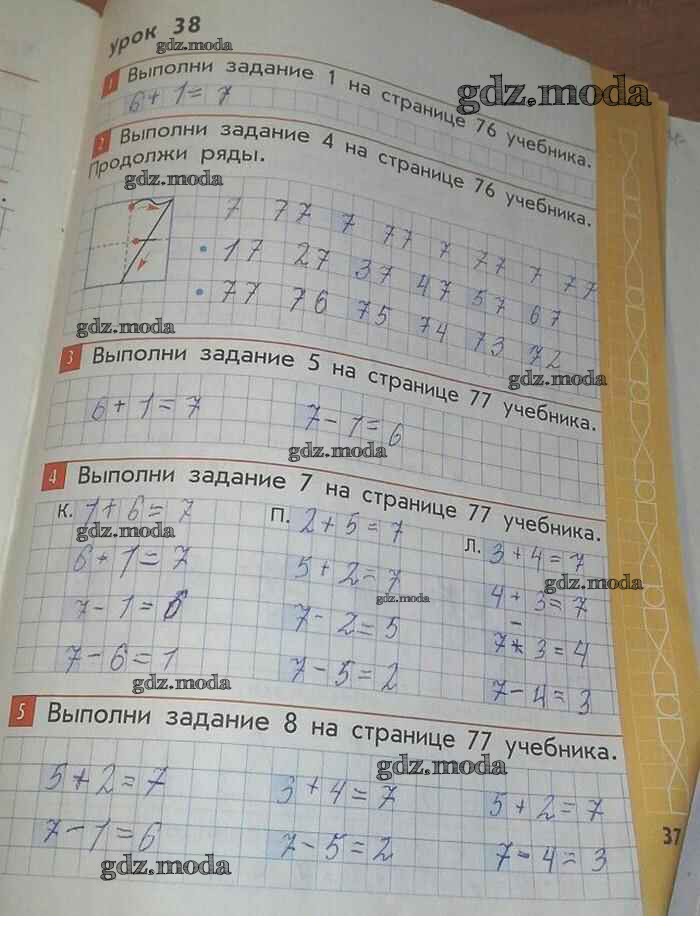 урок 38
gdz.moda
1 Выполни задание 1 на странице 76 учебника.
gdz.moda
6+1=7
2 Выполни задание 4 на странице 76 учебника.
Продолжи ряды.
gdz.moda
7 77 7 77 7 77 7 77
• 17 27 37 47 57 67
• 77 76 75 74 73 72
gdz.moda
3 Выполни задание 5 на странице 77 учебника.
gdz.moda
6+1=7 7-1=6
gdz.moda
4 Выполни задание 7 на странице 77 учебника.
К. 1+6=7 П. 2+5=7 Л. 3+4=7
gdz.moda
6+1=7 5+2=7 4+3=7
gdz.moda gdz.moda
7-1=6 7-2=5 7-3=4
7-6=1 7-5=2 7-4=3
gdz.moda
5 Выполни задание 8 на странице 77 учебника.
gdz.moda
5+2=7 3+4=7 5+2=7
7-1=6 7-5=2 7-4=3
gdz.moda
37